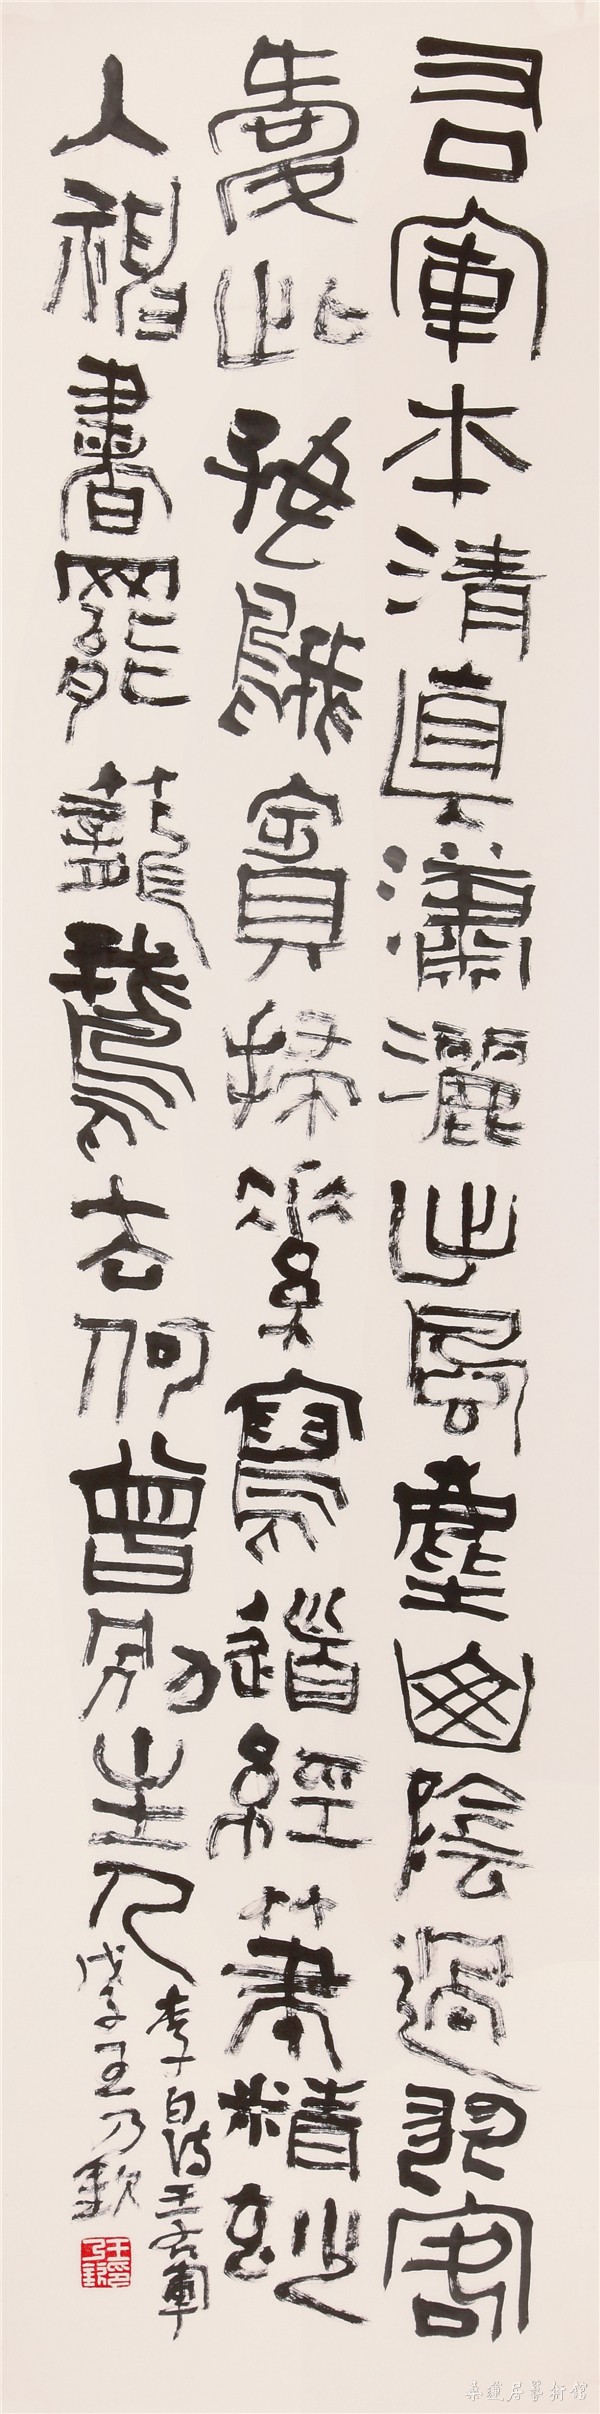 右軍本清真瀟灑出風塵山陰過羽客
愛此好鵝賓掃素寫道經筆精妙
入神書罷籠鵝去何曾別主人
李白詩王右軍
戊子王乃欽
桑蓮居藝術館